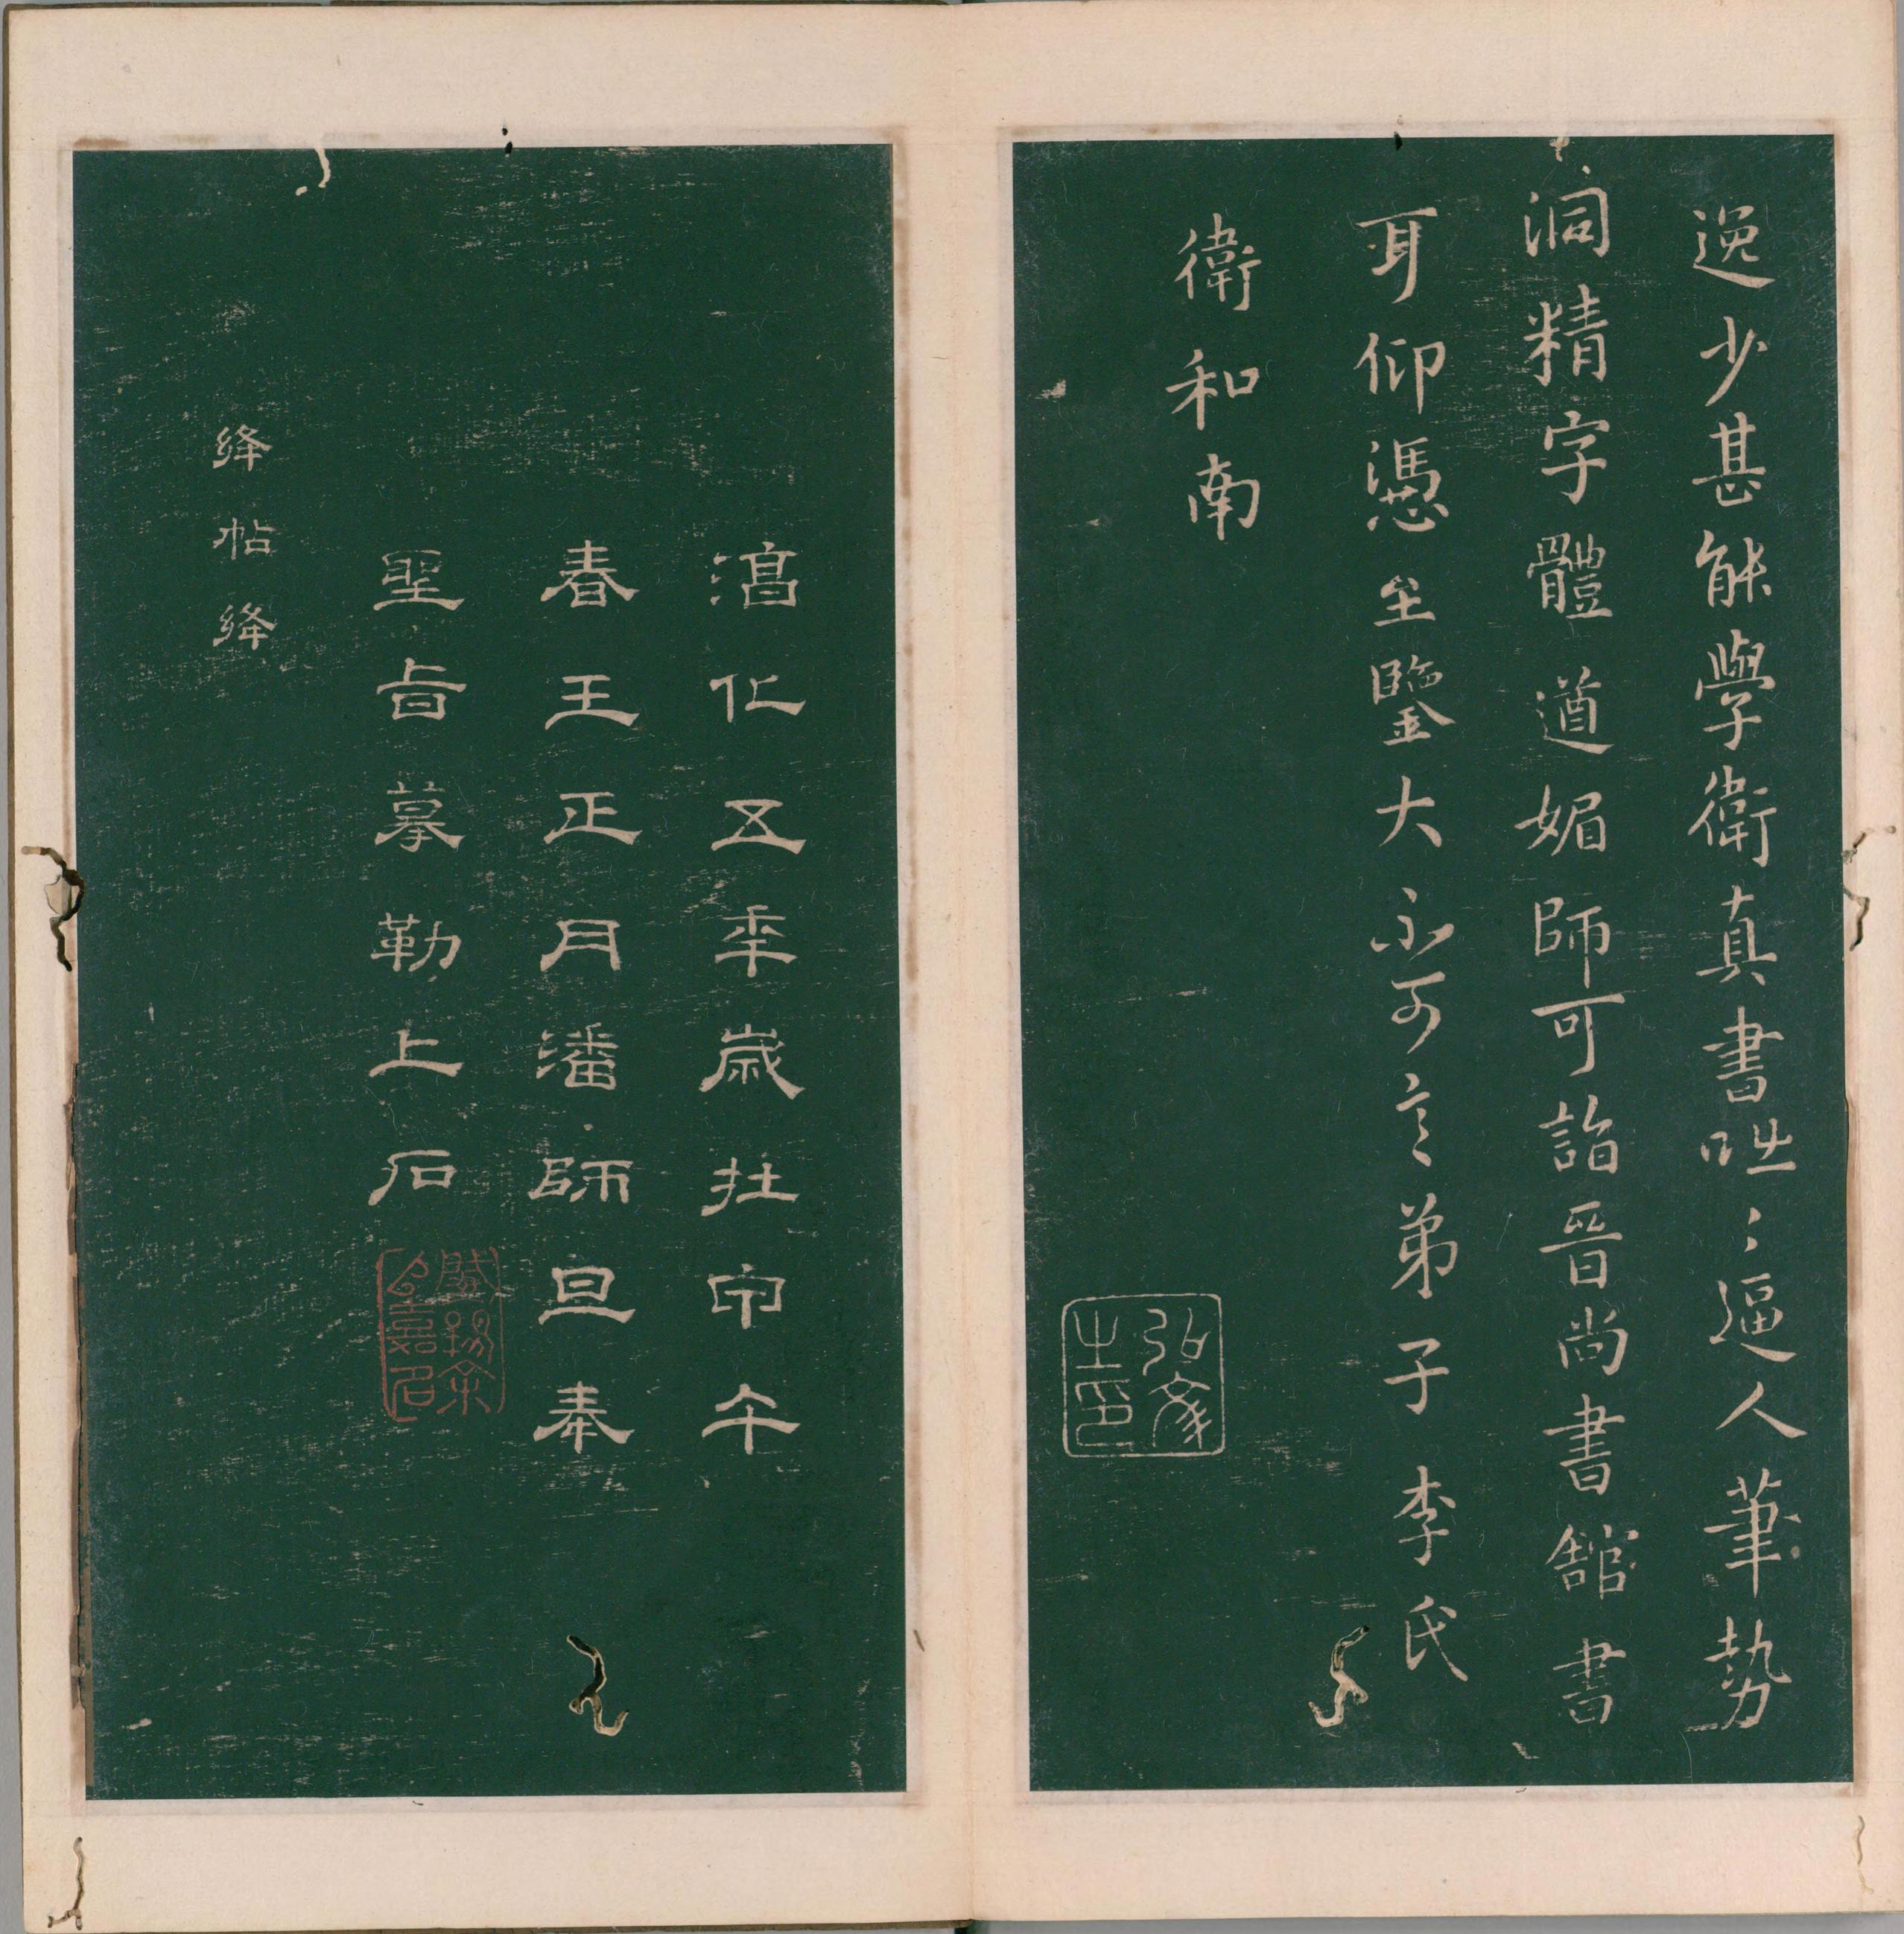 逸少甚能學衛真書咄〻逼人筆勢
洞精字體遒媚師可詣晉尚書館書
耳仰憑至鑒大不可言弟子李氏
衛和南
弘文之印
淳化五年歲在甲午
春王正月潘師旦奉
聖旨摹勒上石
絳帖絳